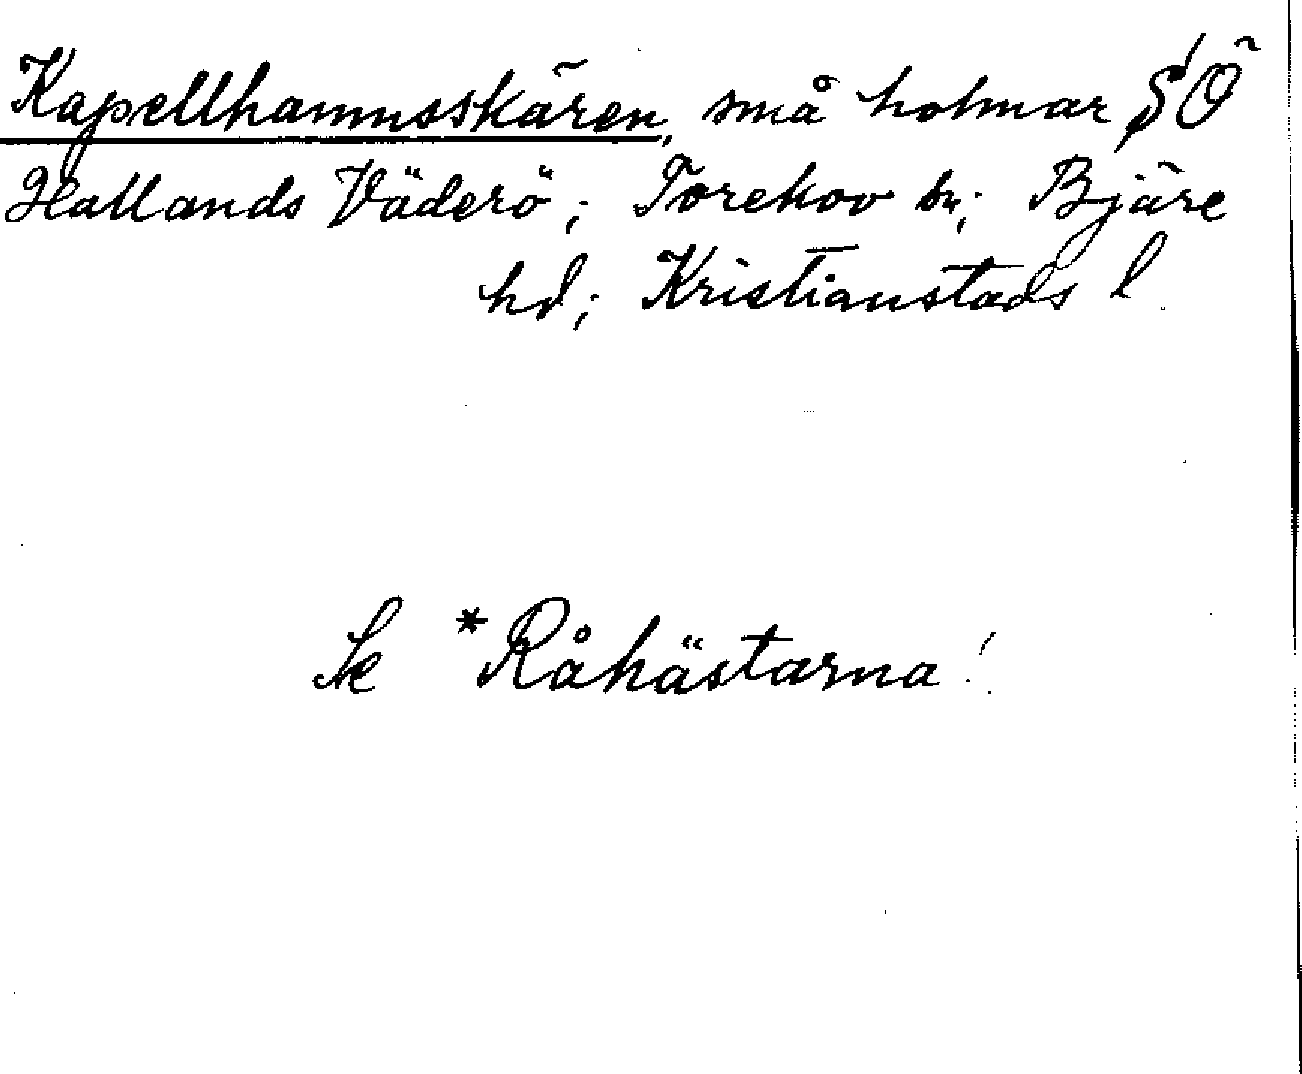 Kapellhamnsskären, små holmar SÖ
Hallands Väderö; Torekov sn; Bjäre
hd; Kristianstads l
Se *Råhästarna!